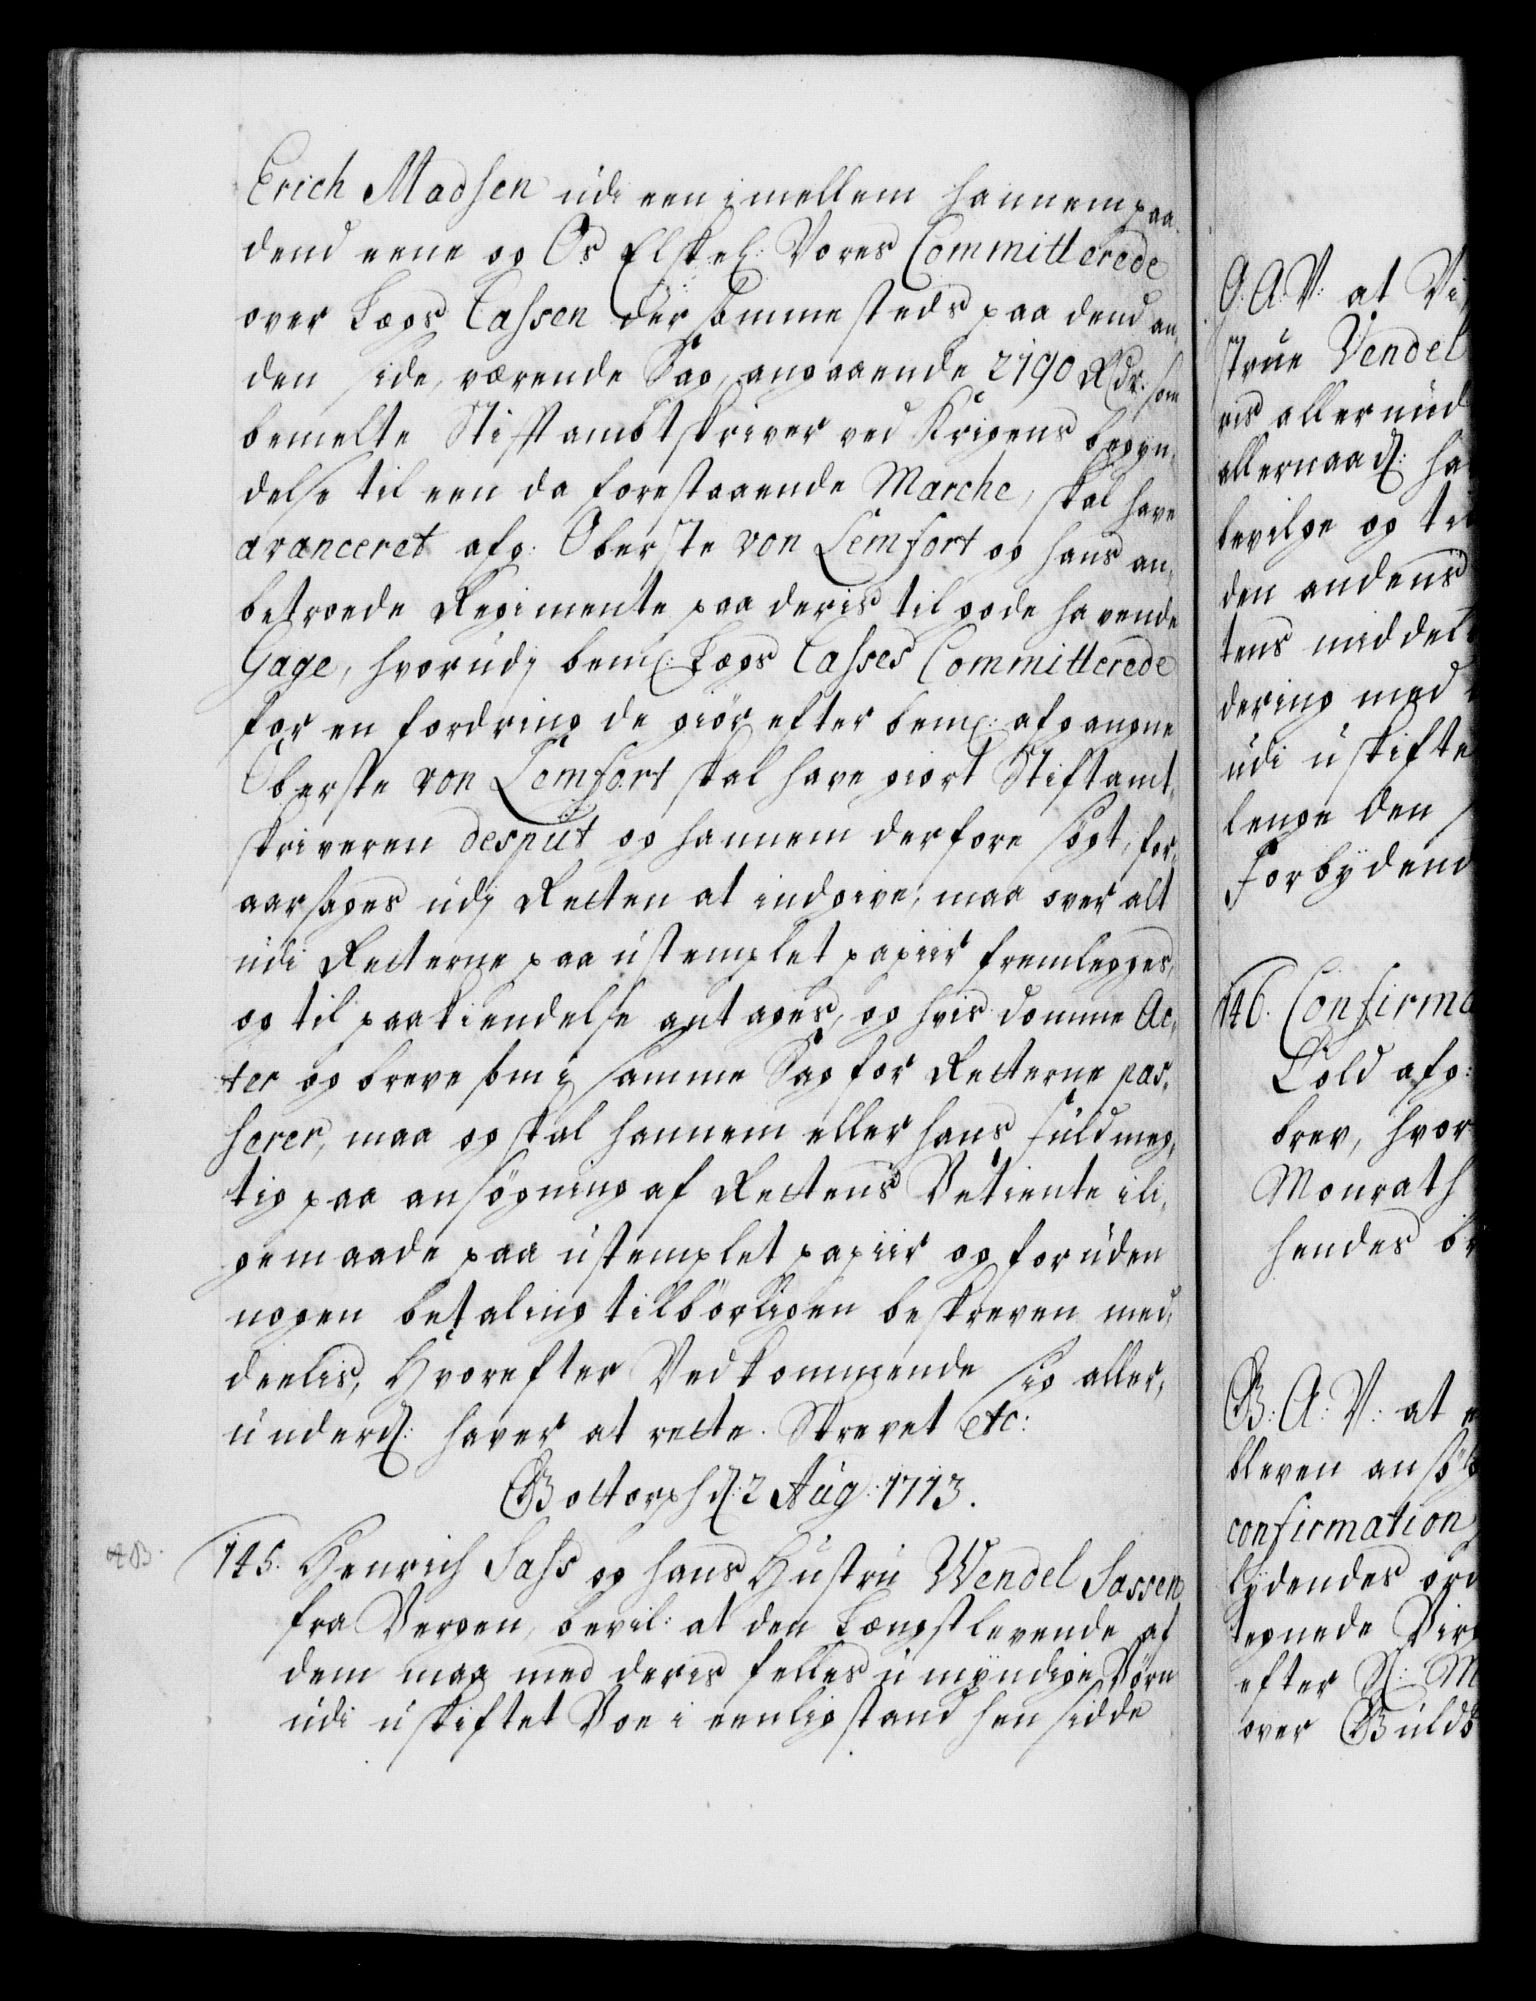 Erich Madsen udi een imellem hannem paa
dend eene og Os Elskel: Vores Committerede
over Lægs Cassen der sammesteds paa dend an,
den side, værende Sag, angaaende 2190 Rdr. som
bemelte Stiftambtskriver ved Krigens begyn,
delse til een da forestaaende Marche, skal have
avanceret afg: Oberste von Lemfort og hans an,
betroede Regimente paa deris tilgode havende
Gage, hvorudj bem: Lægs Casses Committerede
for en fordring de giör efter bem: afgangne
Oberste von Lemfort skal have giort Stiftamt,
skriveren desput og hannem derfore sögt, for,
aarsages udj Retten at indgive, maa over alt
udi Retterne paa ustemplet papiir fremlegges,
og til paakiendelse antages, og hvis domme Ac,
ter og breve som i samme Sag for Retterne pas,
serer, maa og skal hannem eller hans fuldmeg,
tig paa ansögning af Rettens Betiente ili,
gemaade paa ustemplet papiir og foruden
nogen betaling tilbörligen beskreven med,
deelis, Hvorefter Vedkommende sig aller,
underd: haver at rette. Skrevet etc:
Gottorph d: 2 Aug: 1713.
145. Henrich Sass og hans Hustru Wendel Sassen
fra Bergen, bevil: at den Længstlevende af
dem maa med deris felles umyndige Börn
udi uskiftet Boe i eenlig stand hensidde
G: A: V: at Vi
strue Vendel
ris allerund
allernaad: ha
bevilge og til
den andens
tens middel
dering med
udi uskifte
lenge den
Forbydend
146. Confirma
Cold afg:
brev, hvor
Monrath
hendes br
G: A: V: at
bleven ansögt
confirmation
lydendes ord
tegnede Vir
efter S: M
over Guldb